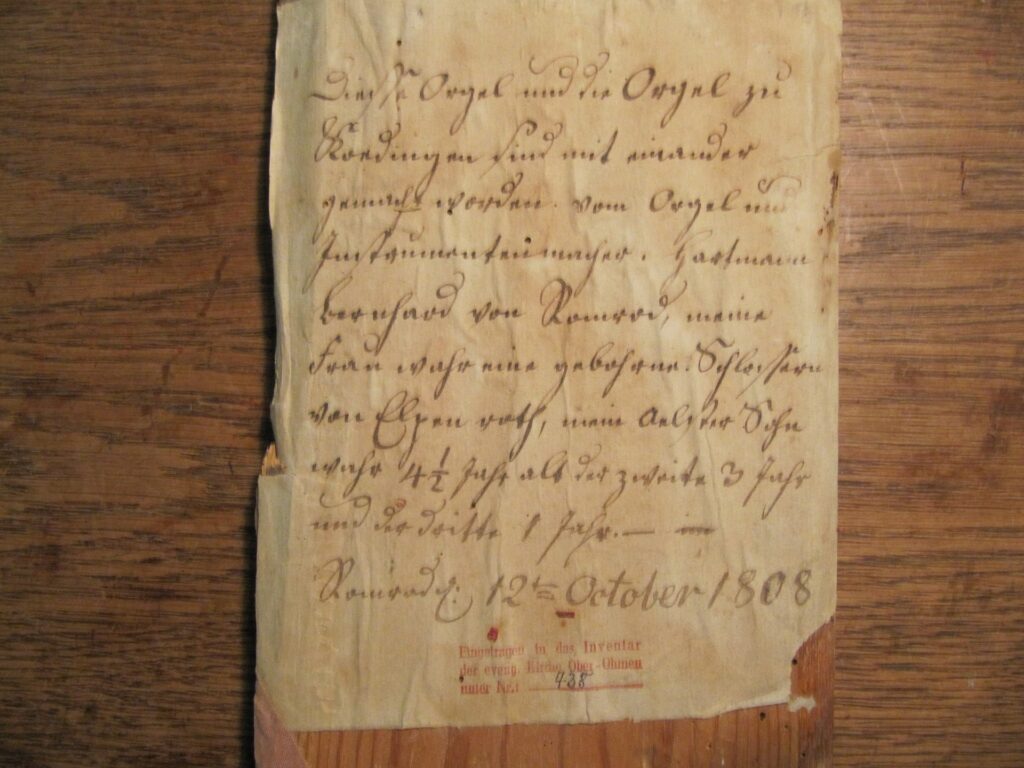 Diesse Orgel und die Orgel zu
Koedingen sind mit einander
gemacht worden. vom Orgel und
Instrumentenmacher. Hartmann
Bernhard von Romrod, meine
Frau wahr eine gebohrne Schlossern
von Elpenroth, mein Aelster Sohn
wahr 4½ Jahr alt der zweite 3 Jahr
und der dritte 1 Jahr. —
Romrod d: 12ten October 1808
Eingetragen in das Inventar
der evang. Kirche Ober-Ohmen
unter Nr.: 438